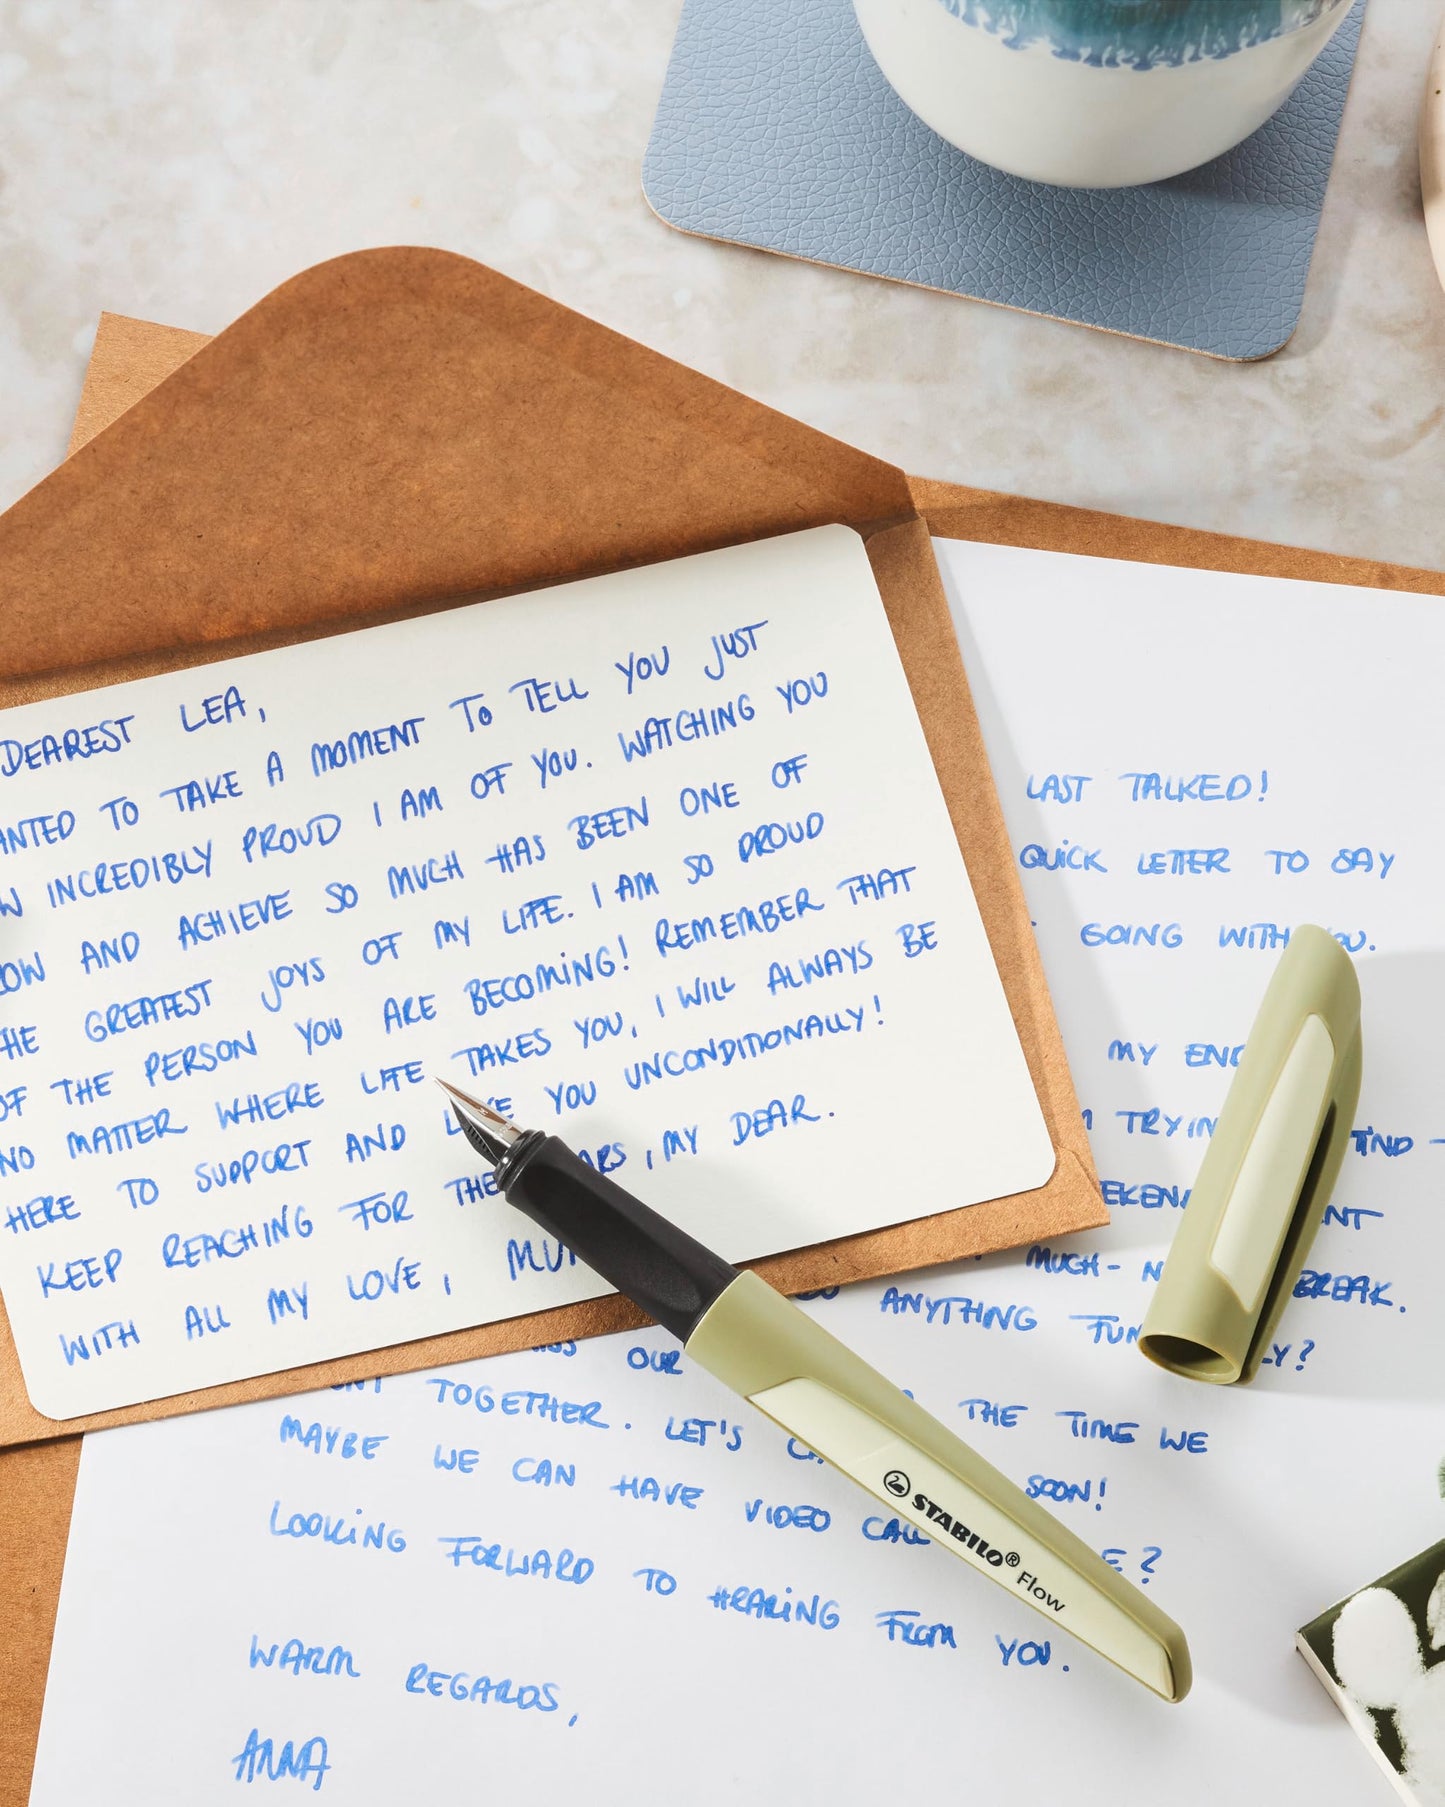 DEAREST LEA,
TO TAKE A MOMENT TO TELL YOU JUST
INCREDIBLY PROUD I AM OF YOU. WATCHING YOU
AND ACHIEVE SO MUCH HAS BEEN ONE OF
GREATEST JOYS OF MY LIFE. I AM SO PROUD
OF THE PERSON YOU ARE BECOMING! REMEMBER THAT
NO MATTER WHERE LIFE TAKES YOU, I WILL ALWAYS BE
HERE TO SUPPORT AND YOU UNCONDITIONALLY!
KEEP REACHING FOR THE , MY DEAR.
WITH ALL MY LOVE,
LAST TALKED!
QUICK LETTER TO SAY
GOING WITH
MY
MUCH-
BREAK.
ANYTHING
OUR
TOGETHER. LET'S THE TIME WE
MAYBE WE CAN HAVE VIDEO CALL SOON!
?
LOOKING FORWARD TO HEARING FROM YOU.
WARM REGARDS,
ANNA
STABILO® Flow